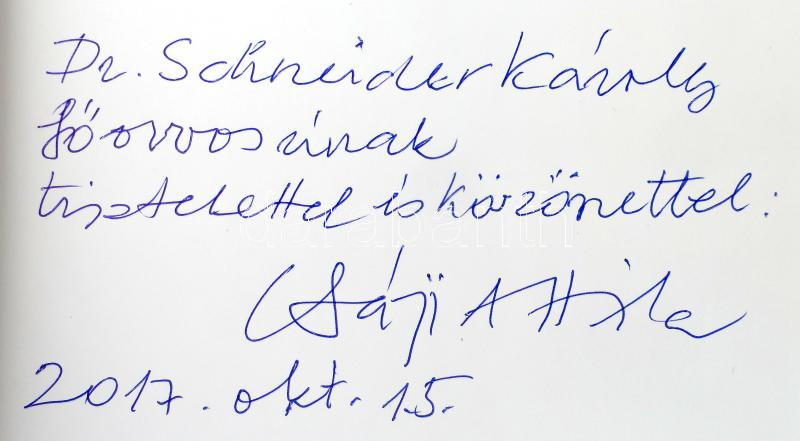 Dr. Schneider Károly
főorvos úrnak
tisztelettel és köszönettel:
Csáji Attila
2017. okt. 15.
darabanth